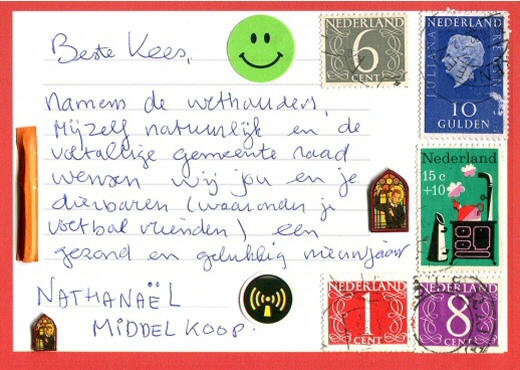 Beste Kees,
namens de wethouders,
Mijzelf natuurlijk en de
voltallige gemeente raad
wensen wij jou en je
dierbaren (waaronder je
voetbal vrienden) een
gezond en gelukkig nieuwjaar
NATHANAËL
MIDDELKOOP.
NEDERLAND
6
CENT
NEDERLAND
JULIANA REGINA
10
GULDEN
Nederland
15 c
+10
NEDERLAND
1
CENT
NEDERLAND
8
CENT